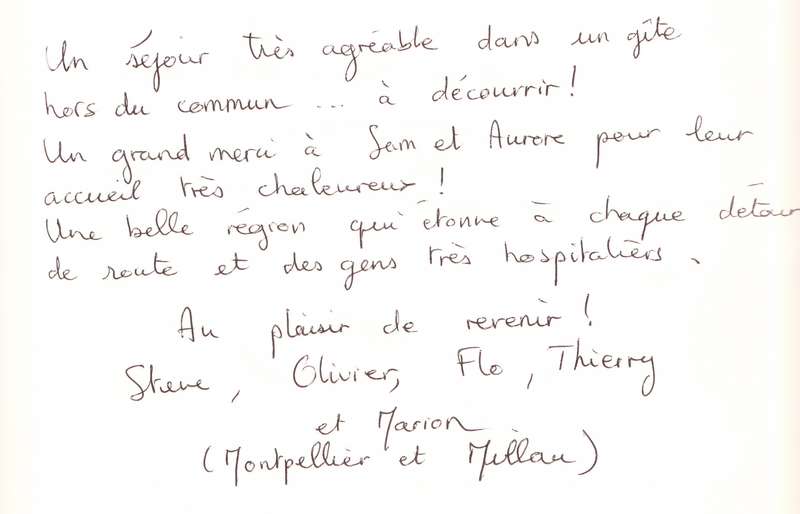 Un séjour très agréable dans un gîte
hors du commun ... à découvrir !
Un grand merci à Sam et Aurore pour leur
accueil très chaleureux !
Une belle région qui étonne à chaque détour
de route et des gens très hospitaliers.
Au plaisir de revenir !
Steve, Olivier, Flo, Thierry
et Marion
(Montpellier et Millau)